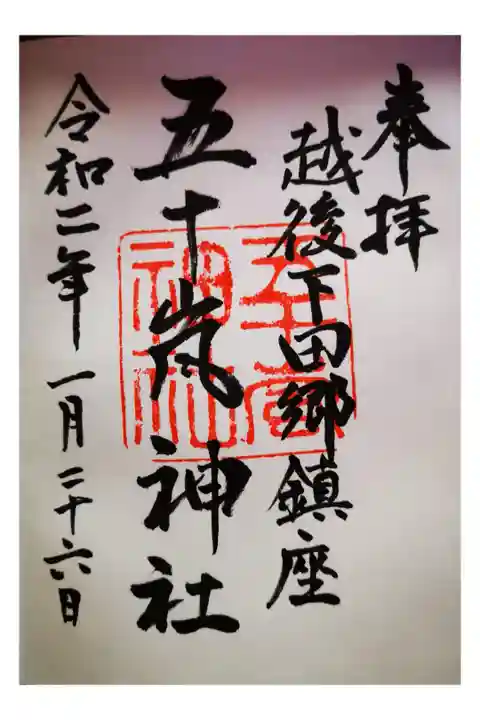 奉拝
越後下田郷鎮座
五十嵐神社
令和二年一月二十六日